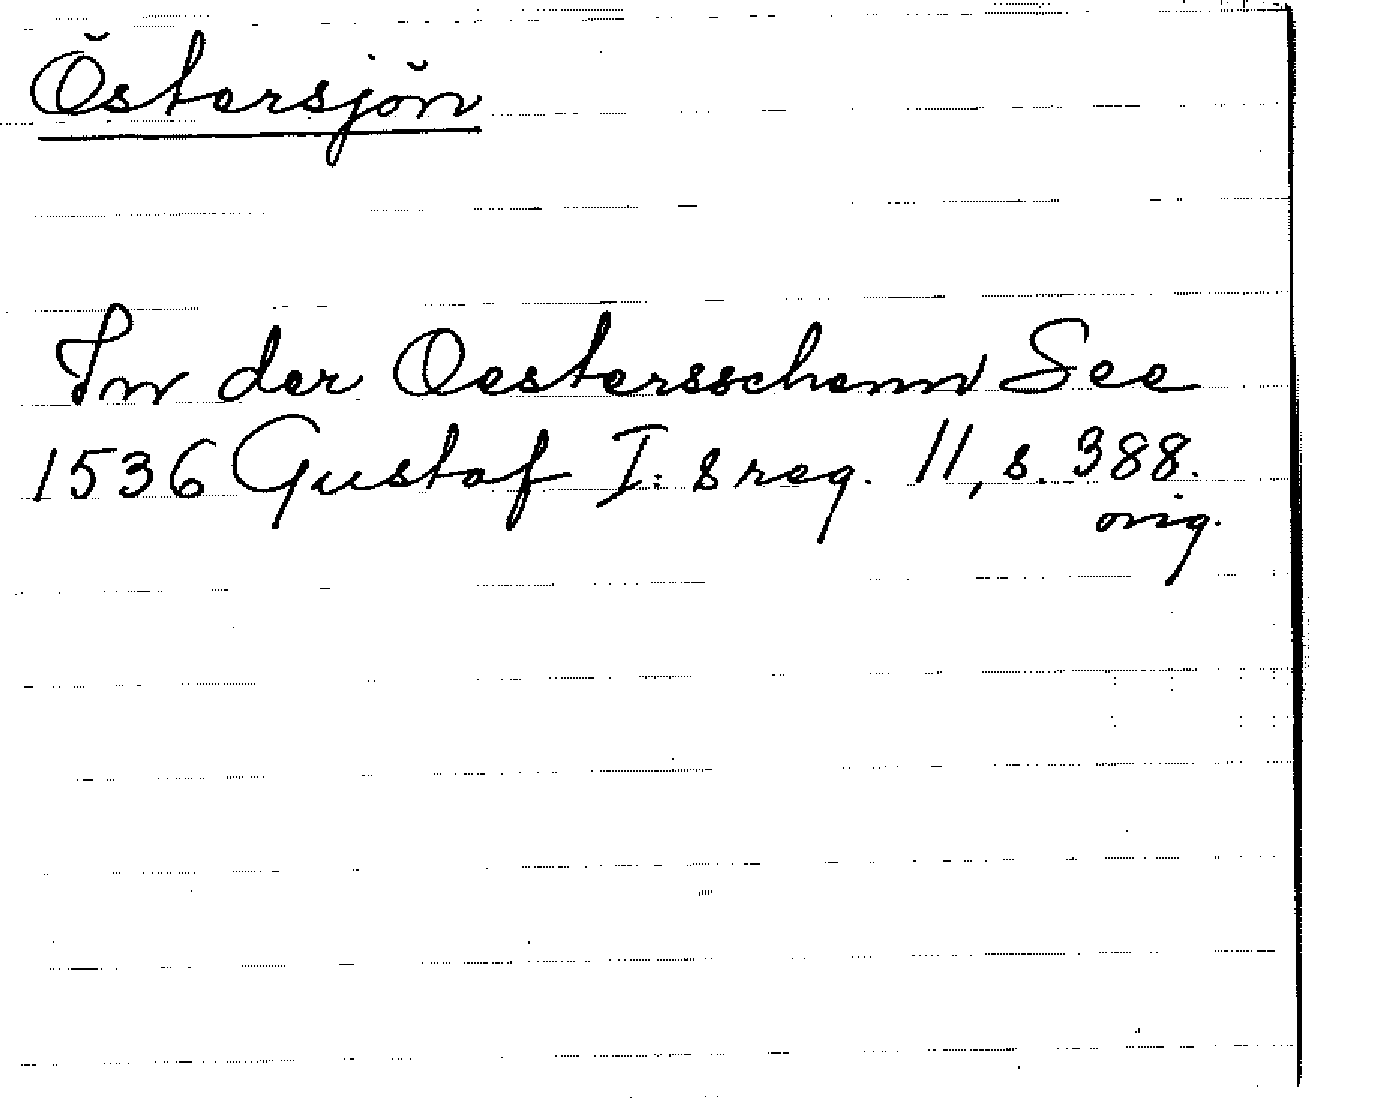 Östersjön
In der Oestersschenn See
1536 Gustaf I:s reg. 11, s. 388.
orig.